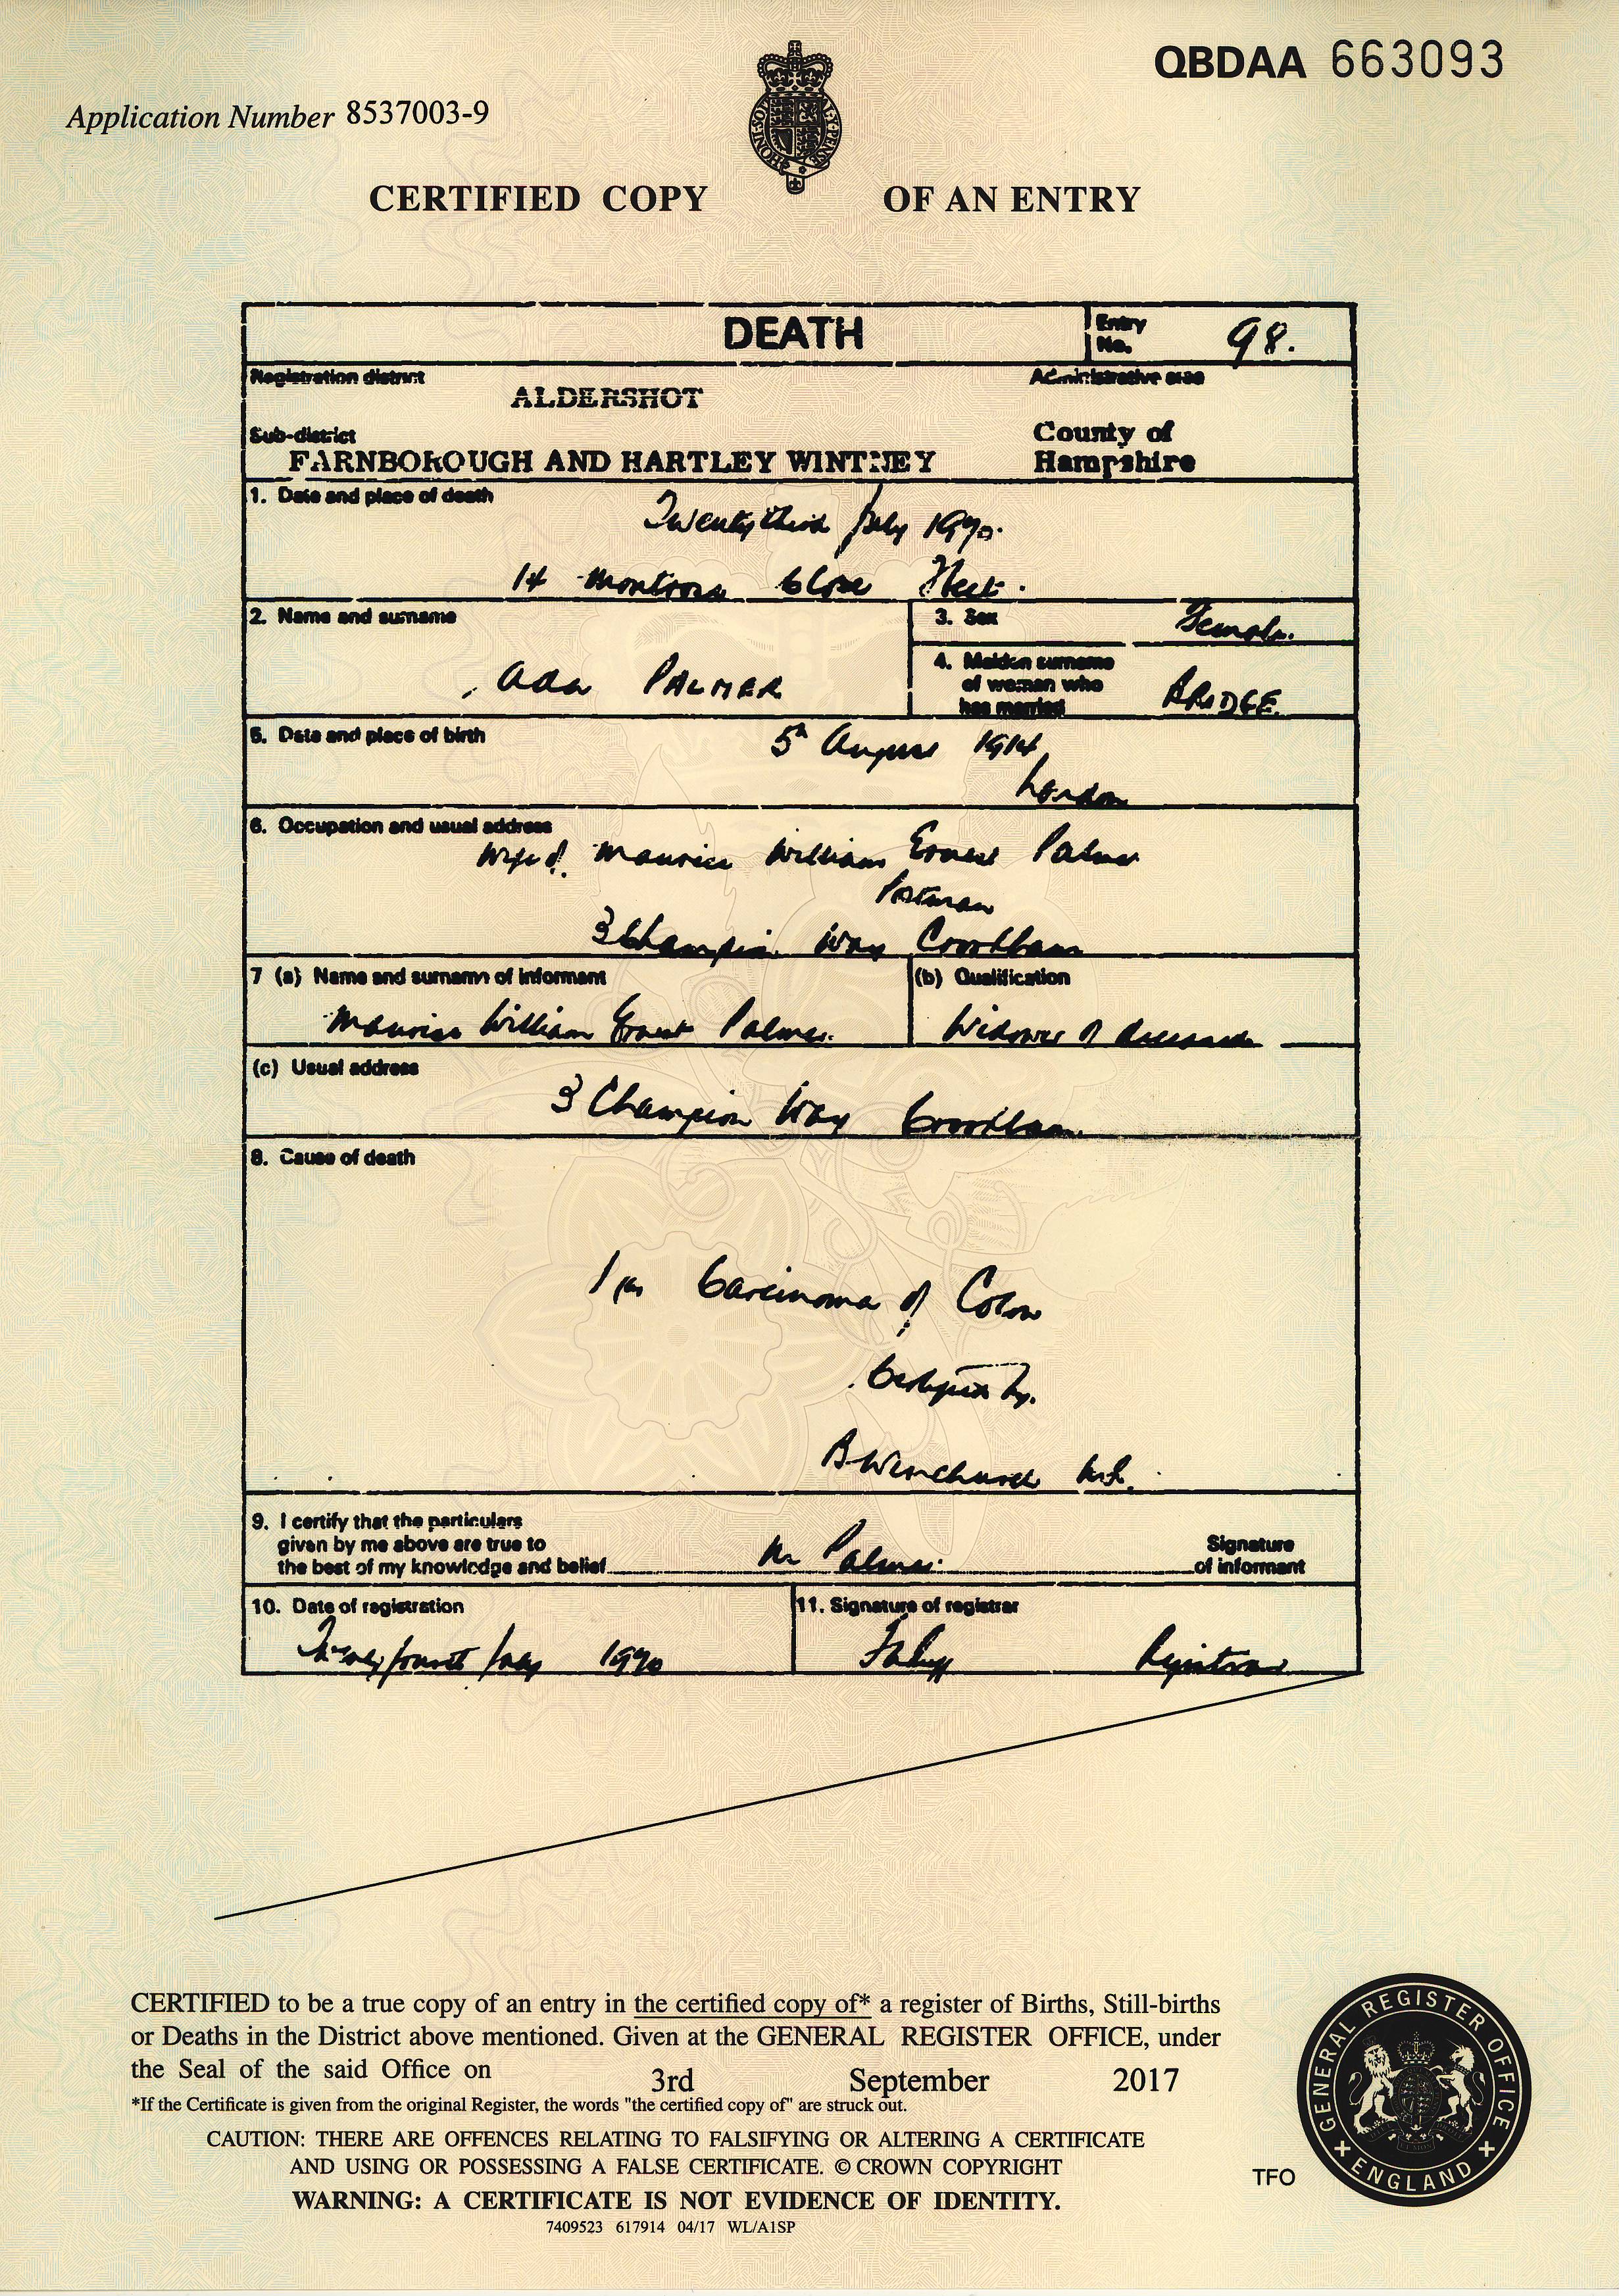 QBDAA 663093
Application Number 8537003-9
CERTIFIED COPY OF AN ENTRY
DEATH
Entry No. 98.
Registration district
ALDERSHOT
Administrative area
Sub-district
FARNBOROUGH AND HARTLEY WINTNEY
County of
Hampshire
1. Date and place of death
Twenty third July 1990.
14 Montrose Close Fleet.
2. Name and surname
Ada PALMER
3. Sex
Female.
4. Maiden surname
of woman who
has married
BRIDGE.
5. Date and place of birth
5th August 1914
London
6. Occupation and usual address
Wife of Maurice William Ernest Palmer
Postman
3 Champion Way Crookham
7 (a) Name and surname of informant
Maurice William Ernest Palmer.
(b) Qualification
Widower of deceased
(c) Usual address
3 Champion Way Crookham.
8. Cause of death
1a Carcinoma of Colon
Certified by.
B M.B.
9. I certify that the particulars
given by me above are true to
the best of my knowledge and belief
M Palmer.
Signature
of informant
10. Date of registration
Twenty fourth July 1990
11. Signature of registrar
Registrar
CERTIFIED to be a true copy of an entry in the certified copy of* a register of Births, Still-births
or Deaths in the District above mentioned. Given at the GENERAL REGISTER OFFICE, under
the Seal of the said Office on 3rd September 2017
*If the Certificate is given from the original Register, the words "the certified copy of" are struck out.
CAUTION: THERE ARE OFFENCES RELATING TO FALSIFYING OR ALTERING A CERTIFICATE
AND USING OR POSSESSING A FALSE CERTIFICATE. © CROWN COPYRIGHT
WARNING: A CERTIFICATE IS NOT EVIDENCE OF IDENTITY.
7409523 617914 04/17 WL/A1SP
TFO
GENERAL REGISTER OFFICE
ENGLAND